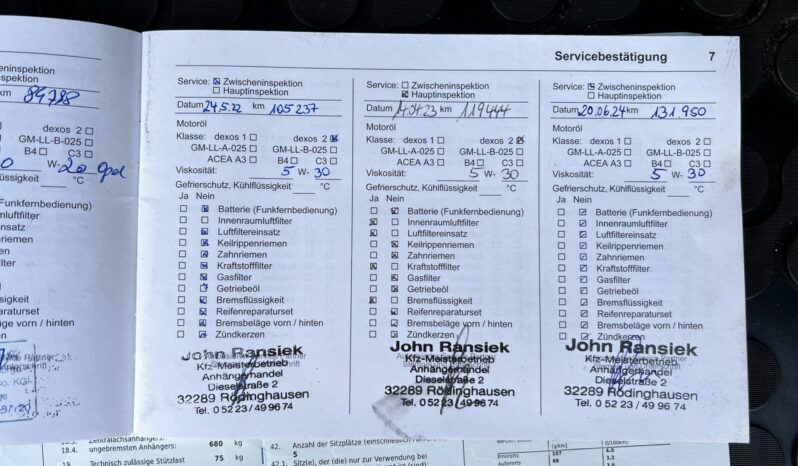 Servicebestätigung 7
heninspektion
spektion
km 89788
dexos 2
GM-LL-B-025
B4 C3
W- 20 Opel
°C
(Funkfernbedienung)
mluftfilter
einsatz
riemen
en
lter
sigkeit
raturset
äge vorn / hinten
en
Service: Zwischeninspektion
Hauptinspektion
Datum 24.5.22 km 105237
Motoröl
Klasse: dexos 1 dexos 2
GM-LL-A-025 GM-LL-B-025
ACEA A3 B4 C3
Viskosität: 5 W- 30
Gefrierschutz, Kühlflüssigkeit °C
Ja Nein
Batterie (Funkfernbedienung)
Innenraumluftfilter
Luftfiltereinsatz
Keilrippenriemen
Zahnriemen
Kraftstofffilter
Gasfilter
Getriebeöl
Bremsflüssigkeit
Reifenreparaturset
Bremsbeläge vorn / hinten
Zündkerzen
John Ransiek
Kfz-Meisterbetrieb
Anhängerhandel
Dieselstraße 2
32289 Rödinghausen
Tel. 0 52 23 / 49 96 74
Service: Zwischeninspektion
Hauptinspektion
Datum 14.04.23 km 119444
Motoröl
Klasse: dexos 1 dexos 2
GM-LL-A-025 GM-LL-B-025
ACEA A3 B4 C3
Viskosität: 5 W- 30
Gefrierschutz, Kühlflüssigkeit °C
Ja Nein
Batterie (Funkfernbedienung)
Innenraumluftfilter
Luftfiltereinsatz
Keilrippenriemen
Zahnriemen
Kraftstofffilter
Gasfilter
Getriebeöl
Bremsflüssigkeit
Reifenreparaturset
Bremsbeläge vorn / hinten
Zündkerzen
John Ransiek
Kfz-Meisterbetrieb
Anhängerhandel
Dieselstraße 2
32289 Rödinghausen
Tel. 0 52 23 / 49 96 74
Service: Zwischeninspektion
Hauptinspektion
Datum 20.06.24 km 131.950
Motoröl
Klasse: dexos 1 dexos 2
GM-LL-A-025 GM-LL-B-025
ACEA A3 B4 C3
Viskosität: 5 W- 30
Gefrierschutz, Kühlflüssigkeit °C
Ja Nein
Batterie (Funkfernbedienung)
Innenraumluftfilter
Luftfiltereinsatz
Keilrippenriemen
Zahnriemen
Kraftstofffilter
Gasfilter
Getriebeöl
Bremsflüssigkeit
Reifenreparaturset
Bremsbeläge vorn / hinten
Zündkerzen
John Ransiek
Kfz-Meisterbetrieb
Anhängerhandel
Dieselstraße 2
32289 Rödinghausen
Tel. 0 52 23 / 49 96 74
18.4. ungebremsten Anhängers: 680 kg
19. Technisch zulässige Stützlast 75 kg
42. Anzahl der Sitzplätze (einschließlich
5
42.1. Sitz(e), der (die) nur zur Verwendung bei
Innerorts 107
Außerorts 88